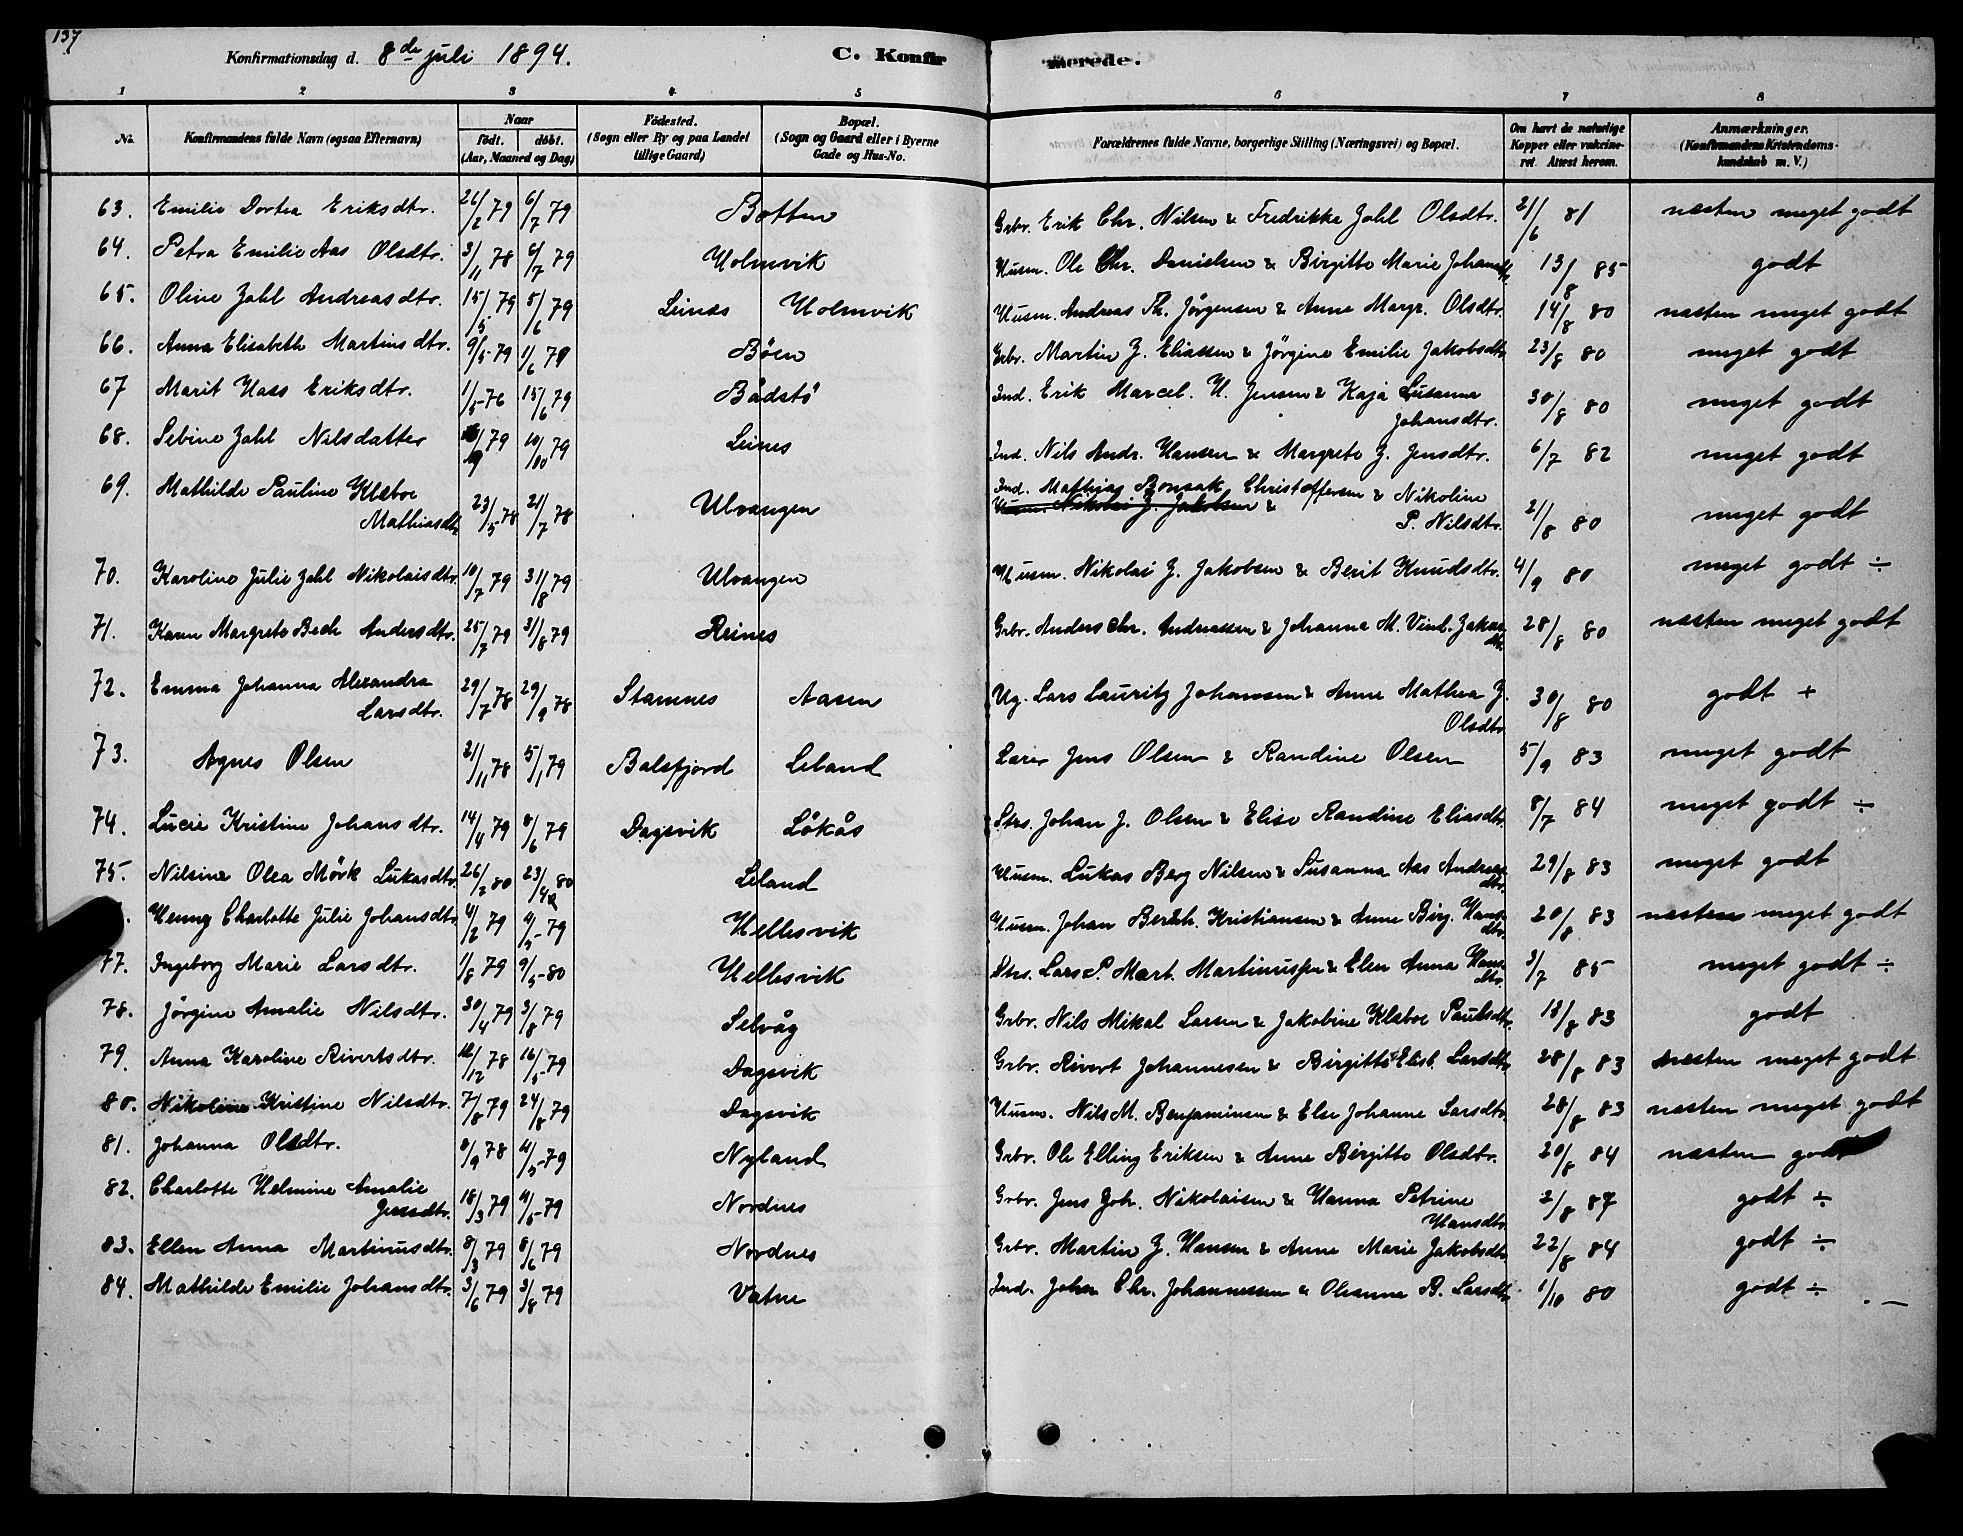 137
Konfirmationsdag d. 8de juli 1894. C. Konfirmerede.
1 2 3 4 5 6 7 8
No. Konfirmandens fulde Navn (ogsaa Efternavn) Naar født. døbt. (Aar, Maaned og Dag) Fødested. (Sogn eller By og paa Landet tillige Gaard) Bopæl. (Sogn og Gaard eller i Byerne Gade og Hus-No. Forældrenes fulde Navne, borgerlige Stilling (Næringsvei) og Bopæl. Om havt de naturlige Kopper eller vakcineret. Attest herom. Anmærkninger. (Konfirmandens Kristendomskundskab m. V.)
63. Emilie Dortea Eriksdtr. 26/2 79 6/7 79 Botten Grbr. Erik Chr. Nilsen & Fredrikke Zahl Olsdtr. 21/6 81 næsten meget godt
64. Petra Emilie Aas Olsdtr. 3/11 78 6/7 79 Holmvik Husm. Ole Chr. Danielsen & Birgitte Marie Johansdtr 13/8 85 godt
65. Oline Zahl Andreasdtr. 15/5 79 5/6 79 Leines Holmvik Husm. Andreas Th. Jørgensen & Anne Margr. Olsdtr. 14/8 80 næsten meget godt
66. Anna Elisabeth Martinsdtr. 9/5 79 1/6 79 Bøen Grbr. Martin Z. Eliassen & Jørgine Emilie Jakobsdtr 23/8 80 meget godt
67 Marit Hass Eriksdtr. 1/5 76 15/6 79 Bådstø Ind. Erik Marcel. H. Jensen & Kaja Susanna
Johansdtr. 30/8 80 meget godt
68. Sebine Zahl Nilsdatter /9 79 19/10 79 Leines Ind. Nils Andr. Hansen & Margrete Z. Jensdtr. 6/7 82 meget godt
69. Mathilde Pauline Klæboe
Mathiasdtr 23/5 78 21/7 78 Ulvangen Ind. Mathias Bonsak Christoffersen & Nikoline
Husm. Nikolai Z. Jakobsen &
P. Nilsdtr. 21/8 80 meget godt
70. Karoline Julie Zahl Nikolaisdtr. 10/7 79 31/8 79 Ulvangen Husm. Nikolai Z. Jakobsen & Berit Knudsdtr. 4/9 80 meget godt ÷
71. Karen Margrete Bech Andersdtr. 25/7 79 31/8 79 Reines Grbr. Anders Chr. Andreassen & Johanna M. Vinb. Jakobsdtr. 28/8 80 næsten meget godt
72. Emma Johanna Alexandra
Larsdtr. 29/7 78 29/9 78 Stamnes Aasen Ug. Lars Lauritz Johansen & Anne Mathea Z.
Olsdtr 30/8 80 godt +
73. Agnes Olsen 21/11 78 5/1 79 Balsfjord Leland Lærer Jens Olsen & Randine Olsen 5/9 83 meget godt
74. Lucie Kristine Johansdtr. 14/4 79 8/6 79 Dagsvik Løkås Strs. Johan J. Olsen & Elise Randine Eliasdtr. 8/7 84 meget godt ÷
75. Nilsine Olea Mørk Lukasdtr. 26/2 80 23/4 80 Leland Husm. Lukas Berg Nilsen & Susanna Aas Andreasdtr. 29/8 83 meget godt
Henny Charlotte Julie Johansdtr. 4/2 79 4/5 79 Hellesvik Husm. Johan Berth. Kristiansen & Anne Birg. Hansdtr. 20/8 83 næsten meget godt
77. Ingeborg Marie Larsdtr. 1/8 79 9/5 80 Hellesvik Strs. Lars P. Mart. Martinussen & Elen Anna Hansdtr. 3/7 85 meget godt ÷
78. Jørgine Amalie Nilsdtr. 30/4 79 3/8 79 Selvåg Grbr. Nils Mikal Larsen & Jakobine Klæboe Paulsdtr. 18/8 83 godt
79. Anna Karoline Rivertsdtr. 12/12 78 16/5 79 Dagsvik Grbr. Rivert Johannesen & Birgitte Elisb. Larsdtr. 28/8 83 næsten meget godt
80. Nikoline Kristine Nilsdtr. 7/8 79 24/8 79 Dagsvik Husm. Nils M. Benjaminsen & Else Johanne Larsdtr. 28/8 83 næsten meget godt
81. Johanna Olsdtr. 8/9 78 4/5 79 Nyland Grbr. Ole Elling Eriksen & Anne Birgitte Olsdtr. 20/8 84 næsten godt
82. Charlotte Helmine Amalie
Jensdtr. 18/3 79 4/5 79 Nordnes Grbr. Jens Joh. Nikolaisen & Hanna Petrine
Hansdtr. 2/8 84 godt ÷
83. Ellen Anna Martinusdtr. 8/3 79 8/6 79 Nordnes Grbr. Martin Z. Hansen & Anne Marie Jakobsdtr. 22/8 84 godt ÷
84. Mathilde Emilie Johansdtr. 3/6 79 3/8 79 Vatne Ind. Johan Chr. Johannessen & Oleanna B. Larsdtr. 1/10 80 godt ÷